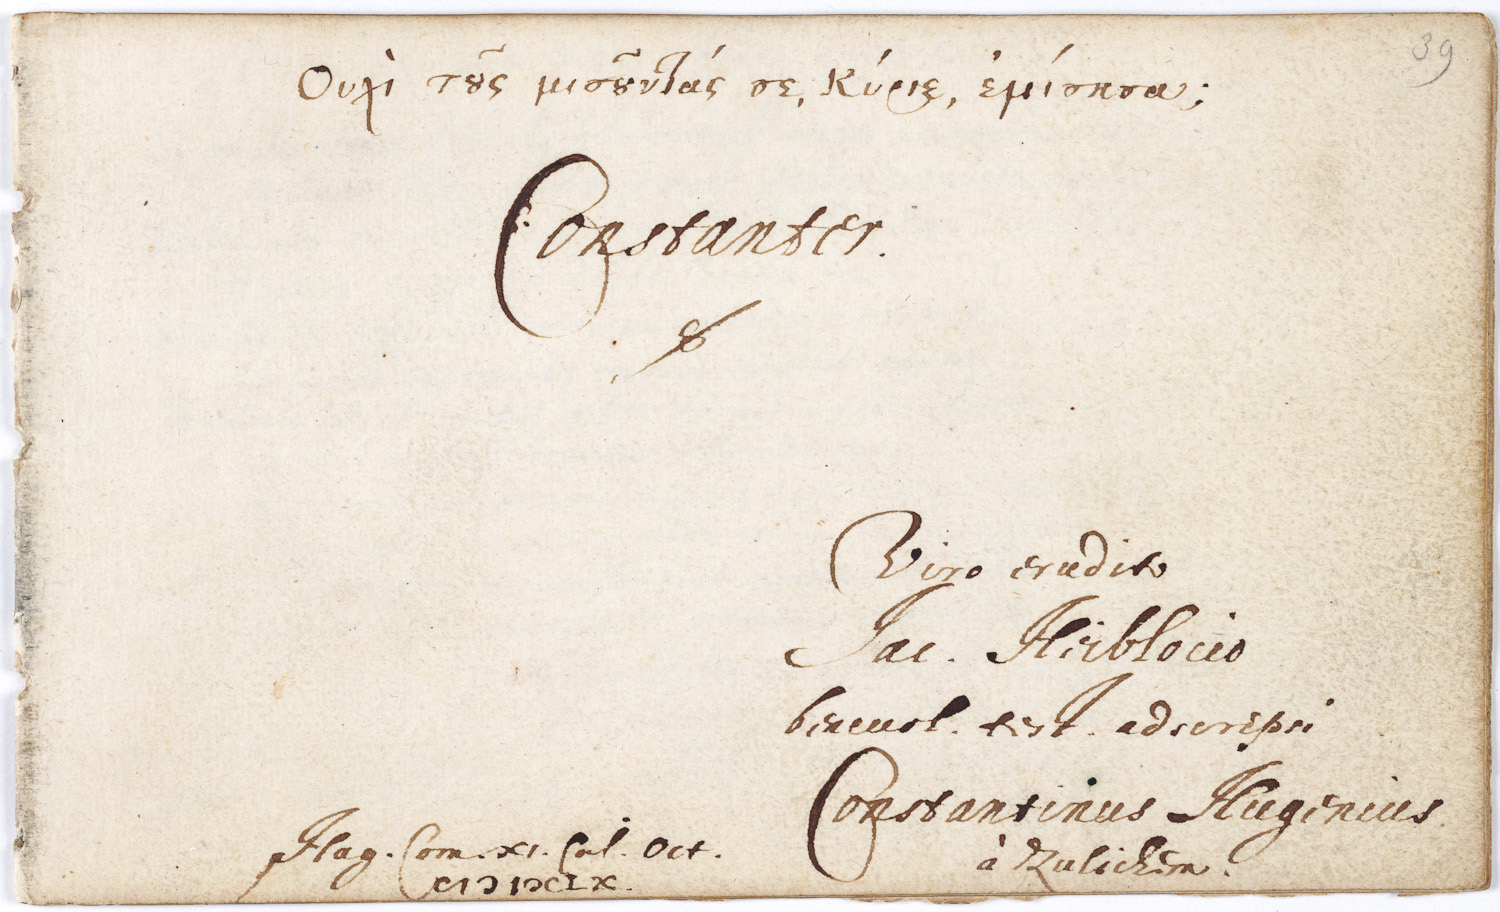 39
Ουχὶ τοῦς μισοῦντάς σε, Κύριε, ἐμίσησα;
Constanter.
Viro erudito
Jac. Heiblocio
benevol. test. adscripsi
Constantinus Hugenius
à Zulichem.
Hag. Com. XI. Cal. Oct.
CIↃIↃCLX.